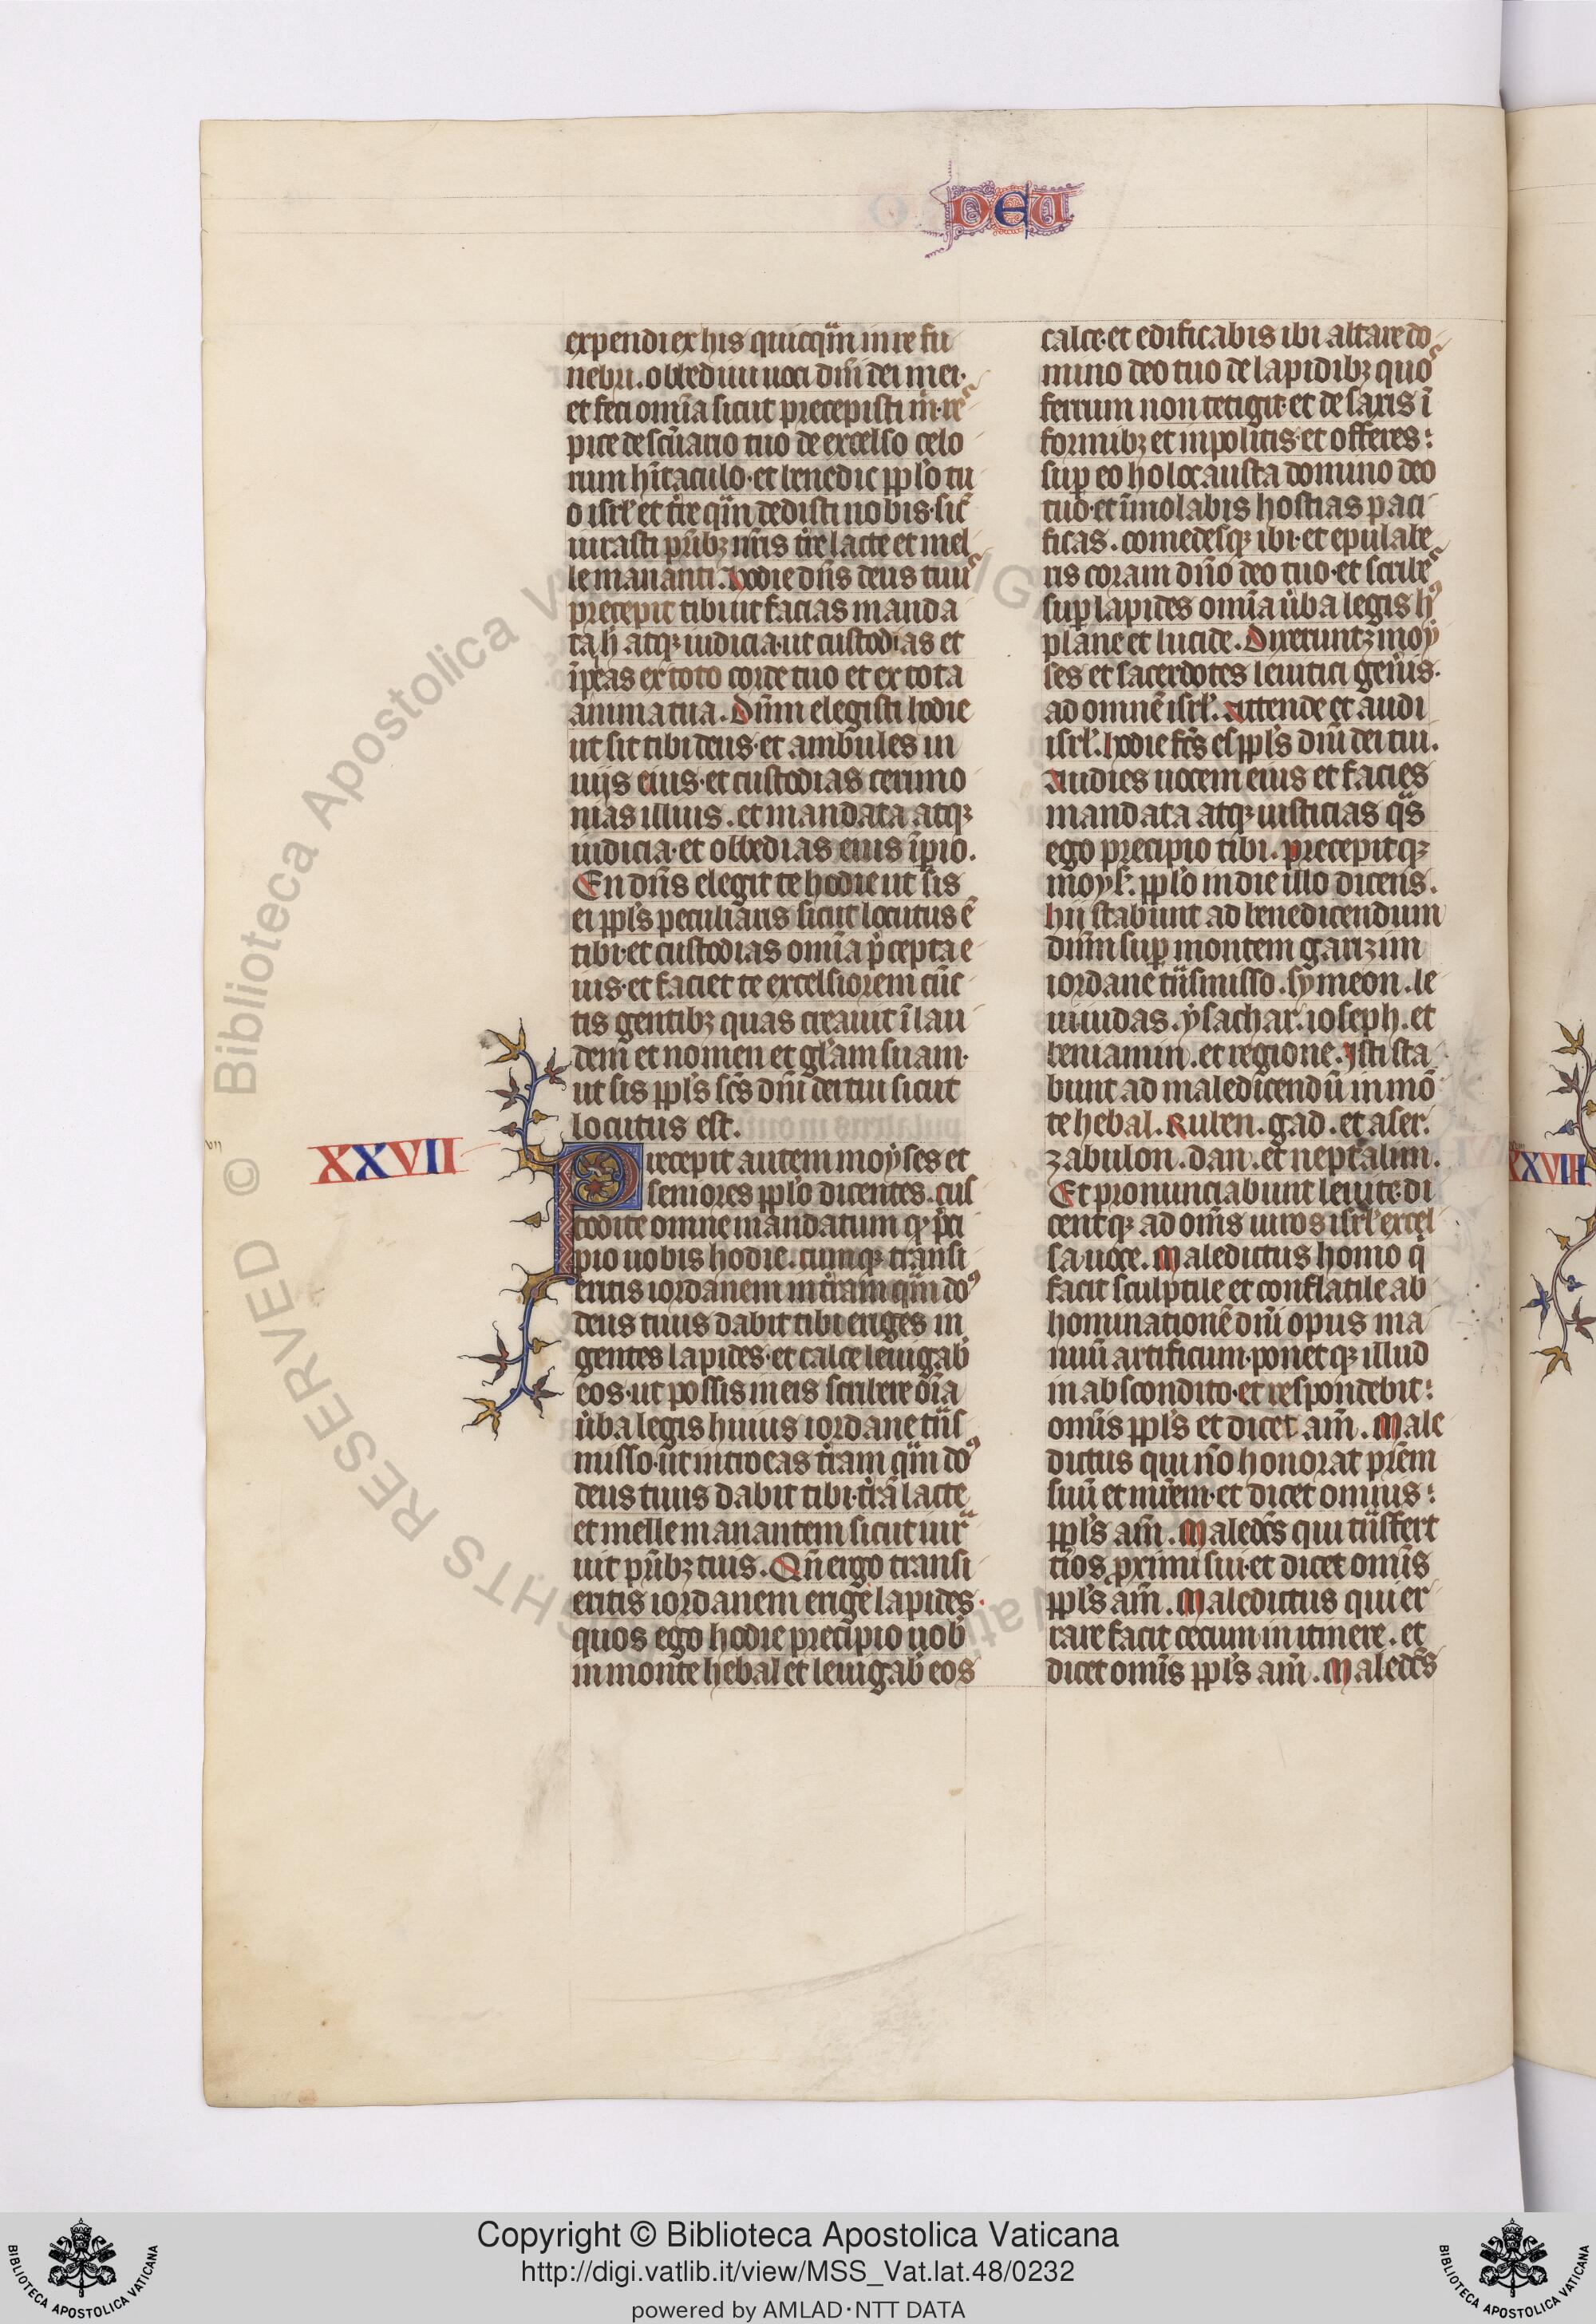 DEU
expendi ex his quicq̃m in re fu
nebri. obbediui uoci dñi dei mei·
et feci om̃ia sicut precepisti m̃·res
pice de sc̃uario tuo de excelso celo
rum hĩtaculo·et benedic ppl̃o tu
o isrl̃ et tr̃e q̃m dedisti nobis·sic̃
iurasti pr̃ibꝫ nr̃is tr̃e lacte et mel
le mananti. hodie dñs deus tuus
precepit tibi ut facias manda
ta h̃ atqꝫ iudicia·ut custodias et
ĩpleas ex toto corde tuo et ex tota
anima tua. Dñm elegisti hodie
ut sit tibi deus·et ambules in
uijs eius·et custodias cerimo
nias illius. et mandata atqꝫ
iudicia·et obbedias eius ĩperio.
En dñs elegit te hodie ut sis
ei ppl̃s peculiaris sicut locutus ẽ
tibi·et custodias om̃ia p̃cepta e
ius·et faciet te excelsiorem cũc
tis gentibꝫ quas creauit ĩ lau
dem et nomen et gl̃am suam·
ut sis ppl̃s sc̃s dñi dei tui sicut
locutus est.
XXVII
Precepit autem moyses et
seniores ppl̃o dicentes. cus
todite omne mandatum qꝫ p̃ci
pio uobis hodie. cumqꝫ transi
eritis iordanem in tr̃am q̃m dõs
deus tuus dabit tibi eriges in
gentes lapides·et calce leuigabꝭ
eos·ut possis in eis scribere õia
ũba legis huius iordane trãs
misso·ut introeas tr̃am q̃m dõs
deus tuus dabit tibi·tr̃ã lacte
et melle manantem sicut iura
uit pr̃ibꝫ tuis. Qñ ergo transi
eritis iordanem erige lapides·
quos ego hodie precipio uobꝭ
in monte hebal et leuigabꝭ eos
calce·et edificabis ibi altare do
mino deo tuo de lapidibꝫ quos
ferrum non tetigit·et de saxis ĩ
formibꝫ et inpolitis·et offeres
sup̱ eo holocausta domino deo
tuo·et ĩmolabis hostias paci
ficas. comedesqꝫ ibi·et epulabe
ris coram dño deo tuo·et scribes
sup̱ lapides om̃ia ũba legis hꝰ
plane et lucide. Dixeruntqꝫ moy
ses et sacerdotes leuitici gen̾is·
ad omnẽ isrl̃. Attende et audi
isrl̃. hodie fc̃s es ppl̃s dñi dei tui.
Audies uocem eius et facies
mandata atqꝫ iusticias q̃s
ego precipio tibi. precepitqꝫ
moyses ppl̃o in die illo dicens.
hii stabunt ad benedicendum
dñm sup̱ montem garizim
iordane trãsmisso. symeon. le
ui·iudas. ysachar. ioseph. et
beniamin. et regione. Isti sta
bunt ad maledicendũ in mõ
te hebal. Ruben. gad. et aser.
zabulon. dan. et neptalim.
Et pronunciabunt leuite·di
centqꝫ ad om̃s uiros isrl̃ excel
sa uoce. Maledictus homo q̃
facit sculptile et conflatile ab
hominationẽ dñi opus ma
nuũ artificum·ponetqꝫ illud
in abscondito·et respondebit
omĩs ppl̃s et dicet am̃. Male
dictus qui ñ honorat pr̃em
suũ et mr̃em·et dicet omnis
ppl̃s am̃. Maledc̃s qui trãsfert
tĩos ꝓximi sui·et dicet omĩs
ppl̃s am̃. Maledictus qui er
rare facit cecum in itinere. et
dicet omĩs ppl̃s am̃. Maledc̃s
XXVIII
Copyright © Biblioteca Apostolica Vaticana
http://digi.vatlib.it/view/MSS_Vat.lat.48/0232
powered by AMLAD·NTT DATA
BIBLIOTECA APOSTOLICA VATICANA
BIBLIOTECA APOSTOLICA VATICANA